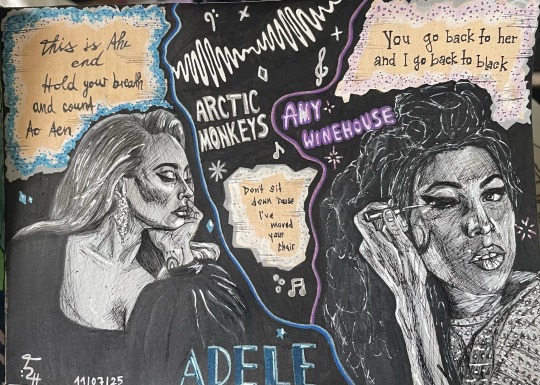 this is the
end
Hold your breath
and count
to ten
ARCTIC
MONKEYS
AMY
WINEHOUSE
You go back to her
and I go back to black
Don't sit
down 'cause
I've
moved
your
chair
ADELE
11/07/25